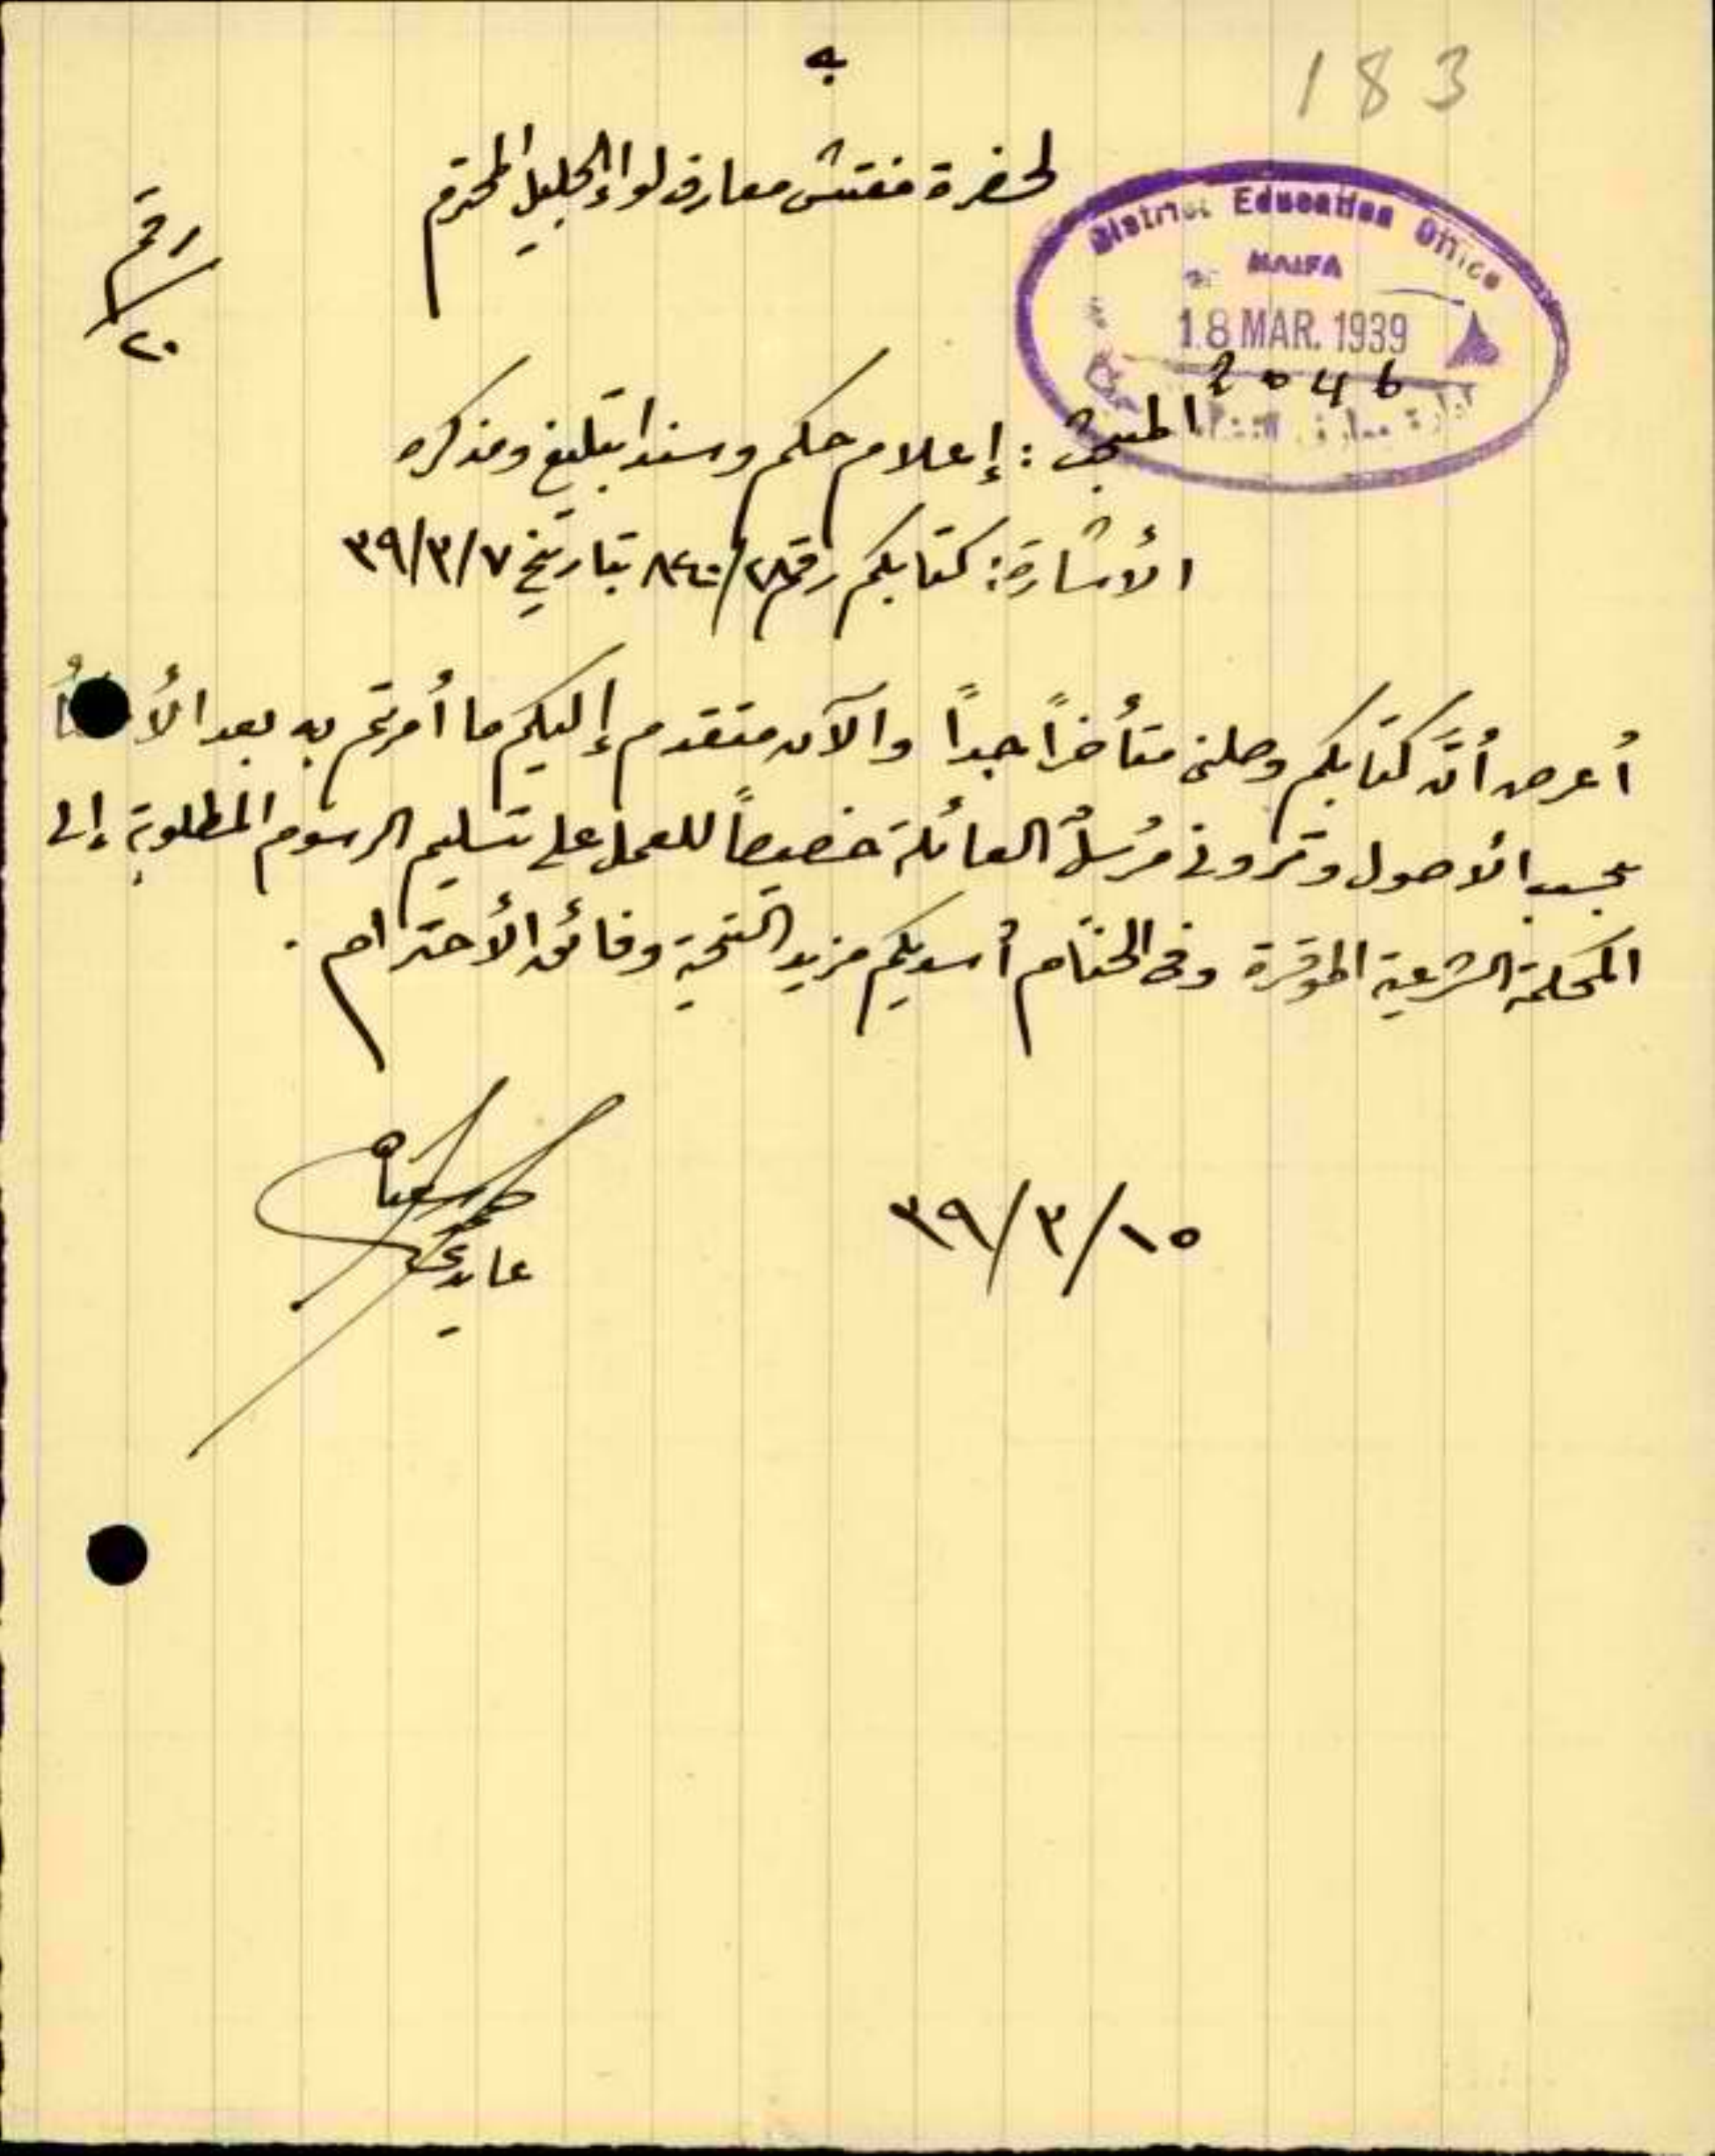 183
لحضرة مفتش معارف لواء الجليل المحترم
رقم
٢٠
District Education Office
HAIFA
18 MAR. 1939
2046
المبحث : إعلام حكم وسندا تبليغ ومذكره
الأشارة: كتابكم رقم ٨٤٠/٢٨ بتاريخ ٣٩/٣/٧
أعرض أنَّ كتابكم وصلني متأخراً جداً والآن متقدم إليكم ما أمرتم به بعد
بحسب الأصول وتروني مُرسلٌ العائلة خصيصاً للعمل على تسليم الرسوم المطلوبة إلى
المحكمة الشرعية الموقرة وفي الختام أسديكم مزيد التحية وفائق الأحترام .
٣٩/٣/١٥